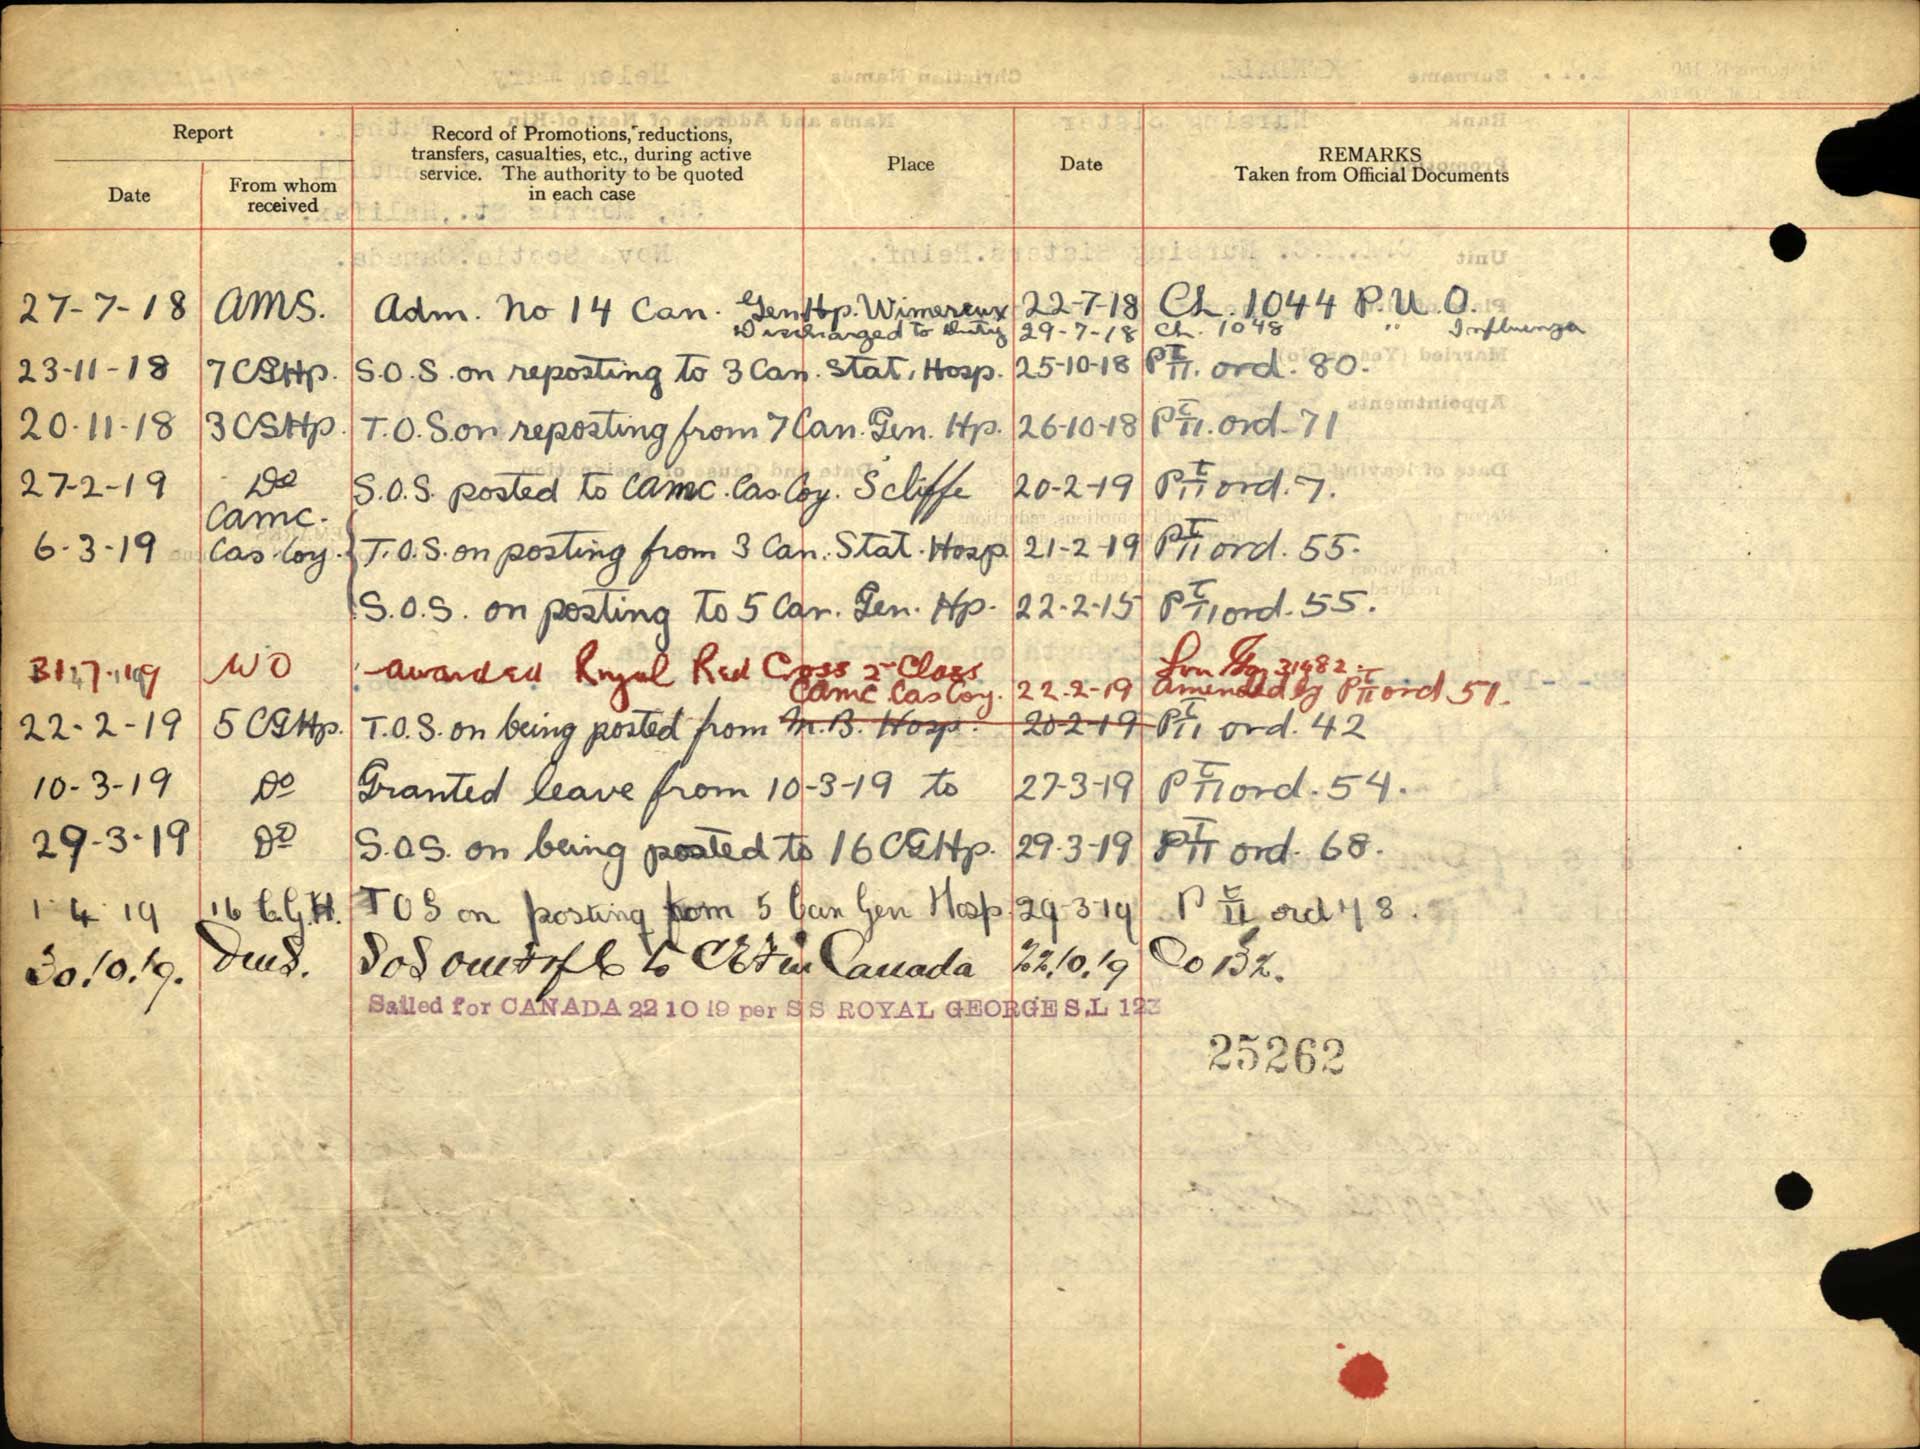 Report
Date
From whom received
Record of Promotions, reductions, transfers, casualties, etc., during active service. The authority to be quoted in each case
Place
Date
REMARKS
Taken from Official Documents
27-7-18 AMS. Adm. No 14 Can. Gen Hp. Wimereux 22-7-18 Ch. 1044 P.U.O.
Discharged to Duty 29-7-18 Ch. 1048 " Influenza
23-11-18 7 CGHp. S.O.S. on reposting to 3 Can. Stat. Hosp. 25-10-18 Pt II. ord. 80.
20-11-18 3 CSHp. T.O.S. on reposting from 7 Can. Gen. Hp. 26-10-18 Pt II. ord. 71
27-2-19 Do S.O.S. posted to CAMC. Cas. Coy. Scliffe 20-2-19 Pt II ord. 7.
6-3-19 CAMC. Cas. Coy. T.O.S. on posting from 3 Can. Stat. Hosp 21-2-19 Pt II ord. 55.
S.O.S. on posting to 5 Can. Gen. Hp. 22-2-15 Pt II ord. 55.
WO awarded Royal Red Cross 2nd Class Lon Gaz 31482.
CAMC Cas Coy. 22-2-19 amended by Pt II ord 51.
22-2-19 5 CGHp. T.O.S. on being posted from M.B. Hosp. 20-2-19 Pt II ord. 42
10-3-19 Do Granted leave from 10-3-19 to 27-3-19 Pt II ord. 54.
29-3-19 Do S.O.S. on being posted to 16 CGHp. 29-3-19 Pt II ord. 68.
1 4 19 16 C.G.H. TOS on posting from 5 Can Gen Hosp 29-3-19 Pt II ord 78.
30.10.19. DMS. SOS to CEF in Canada 22.10.19 Co 132.
Sailed for CANADA 22 10 19 per S S ROYAL GEORGE S.L 123
25262